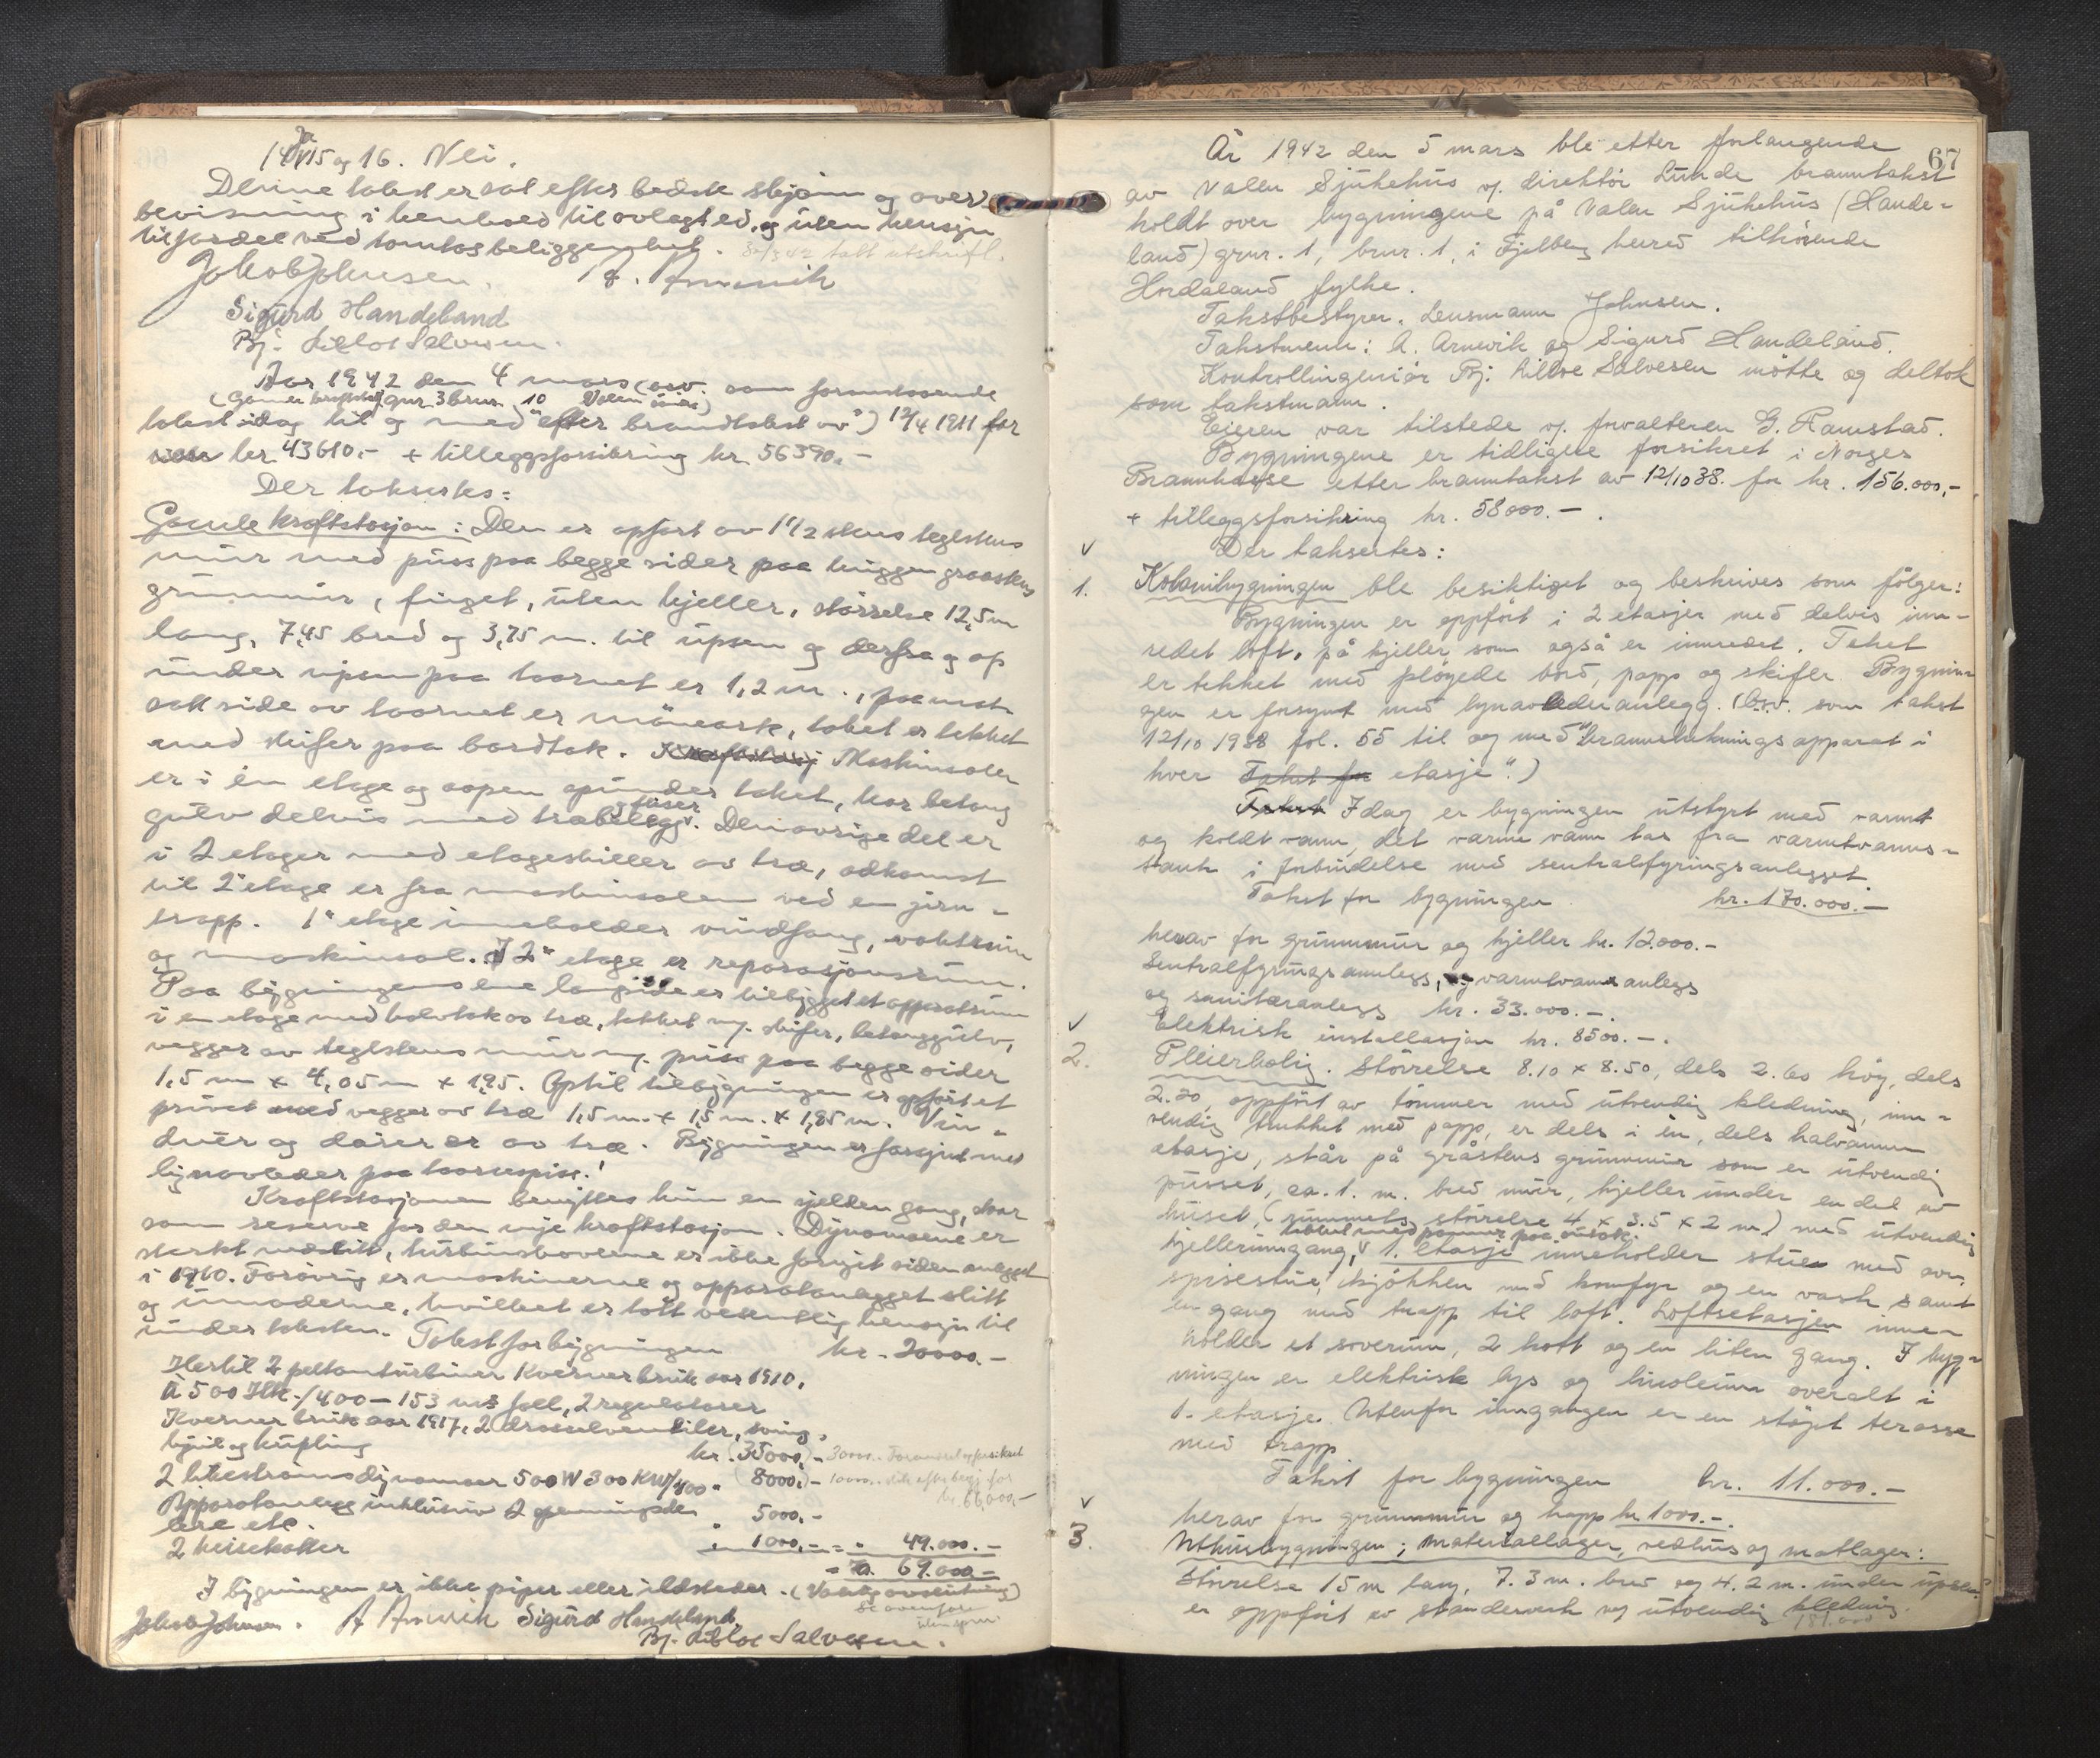 14, 15 og 16. Nei.
Ja
Denne takst er sat efter bedste skjøn og over-
bevisning i henhold til avlagt ed, og uten hensyn
til fordel ved tomtas beliggenhet. 30/3 42 tatt utskrift.
Jakob Johnsen. A. Arnevik
Sigurd Handeland
Bj. Lilloe Salvesen.
Aar 1942 den 4 mars (osv. som foranstaaende
(Gamle kraftstasj. gnr. 3 brnr. 10 Valen
takst idag til og med "efter brandtakst av") 12/4 1911 for
kr. 43610.- + tilleggsforsikring kr. 56390.-
Der takserses:
Gamle kraftstasjon: Den er opført av 1 1/2 stens teglstens
mur med puss paa begge sider paa huggen graastens
grunmur, fuget, uten kjeller, størrelse 12,5 m
lang, 7,45 bred og 3,75 m. til upsen og derfra og op
under upsen paa taarnet er 1,2 m., paa mot-
satt side av taarnet er møneark, taket er tekket
med skifer paa bordtak. Maskinsalen
er i én etage og aapen opunder taket, har betong
gulv delvis med træbelegg. Den øvrige del er
og fliser
i 2 etager med etageskiller av træ, adkomst
til 2' etage er fra maskinsalen ved en jern-
trapp. 1' etage inneholder vindfang, vaktrum
og maskinsal. I 2' etage er reparasjonsrum.
Paa bygningens ene langside er tilbygget et apparatrum
i en etage med halvtak av træ, tekket m/ skifer, betonggulv,
vegger av teglstens mur m/ puss paa begge sider
1,5 m x 4,05 m x 1,95. Optil tilbygningen er opført et
privet med vegger av træ 1,5 m. x 1,5 m. x 1,85 m. Vin-
duer og dører er av træ. Bygningen er forsynt med
lynavleder paa taarnspiss.
Kraftstasjonen benyttes kun en sjelden gang, bare
som reserve for den nye kraftstasjon. Dynamoene er
sterkt nedslitt, turbinskovlene er ikke fornyet siden anlegget
i 1910. Forøvrig er maskinerne og apparatanlegget slitt
og umoderne, hvilket er tatt vesentlig hensyn til
under taksten. Takst for bygningen kr. 20000.-
Hertil 2 peltonturbiner Kværner bruk aar 1910,
à 500 Hk./400 - 153 m's fall, 2 regulatorer
Kværner bruk aar 1917, 2 drosselventiler, sving-
hjul og kupling kr. (35000,)- 30000.-
2 likestrømsdynamoer 500 W 300 KW/400 " (8000,)- 10000.-
kr. 66,000,-
Apparatanlegg inklusiv 2 spenningsde-
lere etc. " 5000.-
2 heisekatter " 1000,- = " 49.000.-
= kr. 69.000.-
I bygningen er ikke piper eller ildsteder.
Jakob Johnsen. A Arnevik Sigurd Handeland
Bj. Lilloe Salvesen.
67
År 1942 den 5 mars ble etter forlangende
av Valen Sjukehus v/ direktør Lunde branntakst
holdt over bygningene på Valen Sjukehus (Hande-
land) gnr. 1, brnr. 1, i Fjelberg herred tilhørende
Hordaland fylke.
Takstbestyrer. Lensmann Johnsen.
Takstmenn: A. Arnevik og Sigurd Handeland.
Kontrollingeniør Bj: Lilloe Salvesen møtte og deltok
som takstmann.
Eieren var tilstede v/ forvalteren G. Ramstad.
Bygningene er tidligere forsikret i Norges
Brannkasse etter branntakst av 12/10 38. for kr. 156.000,-
+ tilleggsforsikring kr. 58000.-.
Der taksertes:
1. Kolonibygningen ble besiktiget og beskrives som følger:
Bygningen er oppført i 2 etasjer med delvis inn-
redet loft, på kjeller som også er innredet. Taket
er tekket med pløyede bord, papp og skifer. Bygnin-
gen er forsynt med lynavlederanlegg. (Osv. som takst
12/10 1938 fol. 55 til og med "brannslukningsapparat i
hver Takst for etasje".)
Takst Idag er bygningen utstyrt med varmt
og koldt vann, det varme vann tas fra varmtvanns-
tank i forbindelse med sentralfyringsanlegget.
Takst for bygningen kr. 170.000.-
herav for grunnmur og kjeller kr. 12.000.-
Sentralfyringsanlegg, og varmtvannsanlegg
og sanitæranlegg kr. 33.000.-.
Elektrisk installasjon kr. 8500.-.
2. Pleierbolig. Størrelse 8.10 x 8.50, dels 2.60 høg, dels
2.20, oppført av tømmer med utvendig kledning, inn-
vendig trukket med papp, er dels i én, dels halvannen
etasje, står på gråstens grunnmur som er utvendig
pusset, ca. 1. m. bred mur, kjeller under en del av
huset, (rummets størrelse 4 x 3.5 x 2 m) med utvendig
tekket med panner paa sutak.
kjellerinngang, 1. etasje inneholder stue med ovn,
spisestue, kjøkken med komfyr og en vask samt
en gang med trapp til loft. Loftsetasjen inne-
holder et soverum, 2 kott og en liten gang. I byg-
ningen er elektrisk lys og linoleum overalt i
1. etasje. Utenfor inngangen er en støpt terasse
med trapp
Takst for bygningen kr. 11.000.-
herav for grunnmur og trapp kr 1000.-.
3. Uthusbygningen; materiallager, vedhus og matlager:
Størrelse 15 m lang, 7.3 m. bred og 4.2 m. under upsen,
er oppført av standerverk m/ utvendig kledning.
181.000